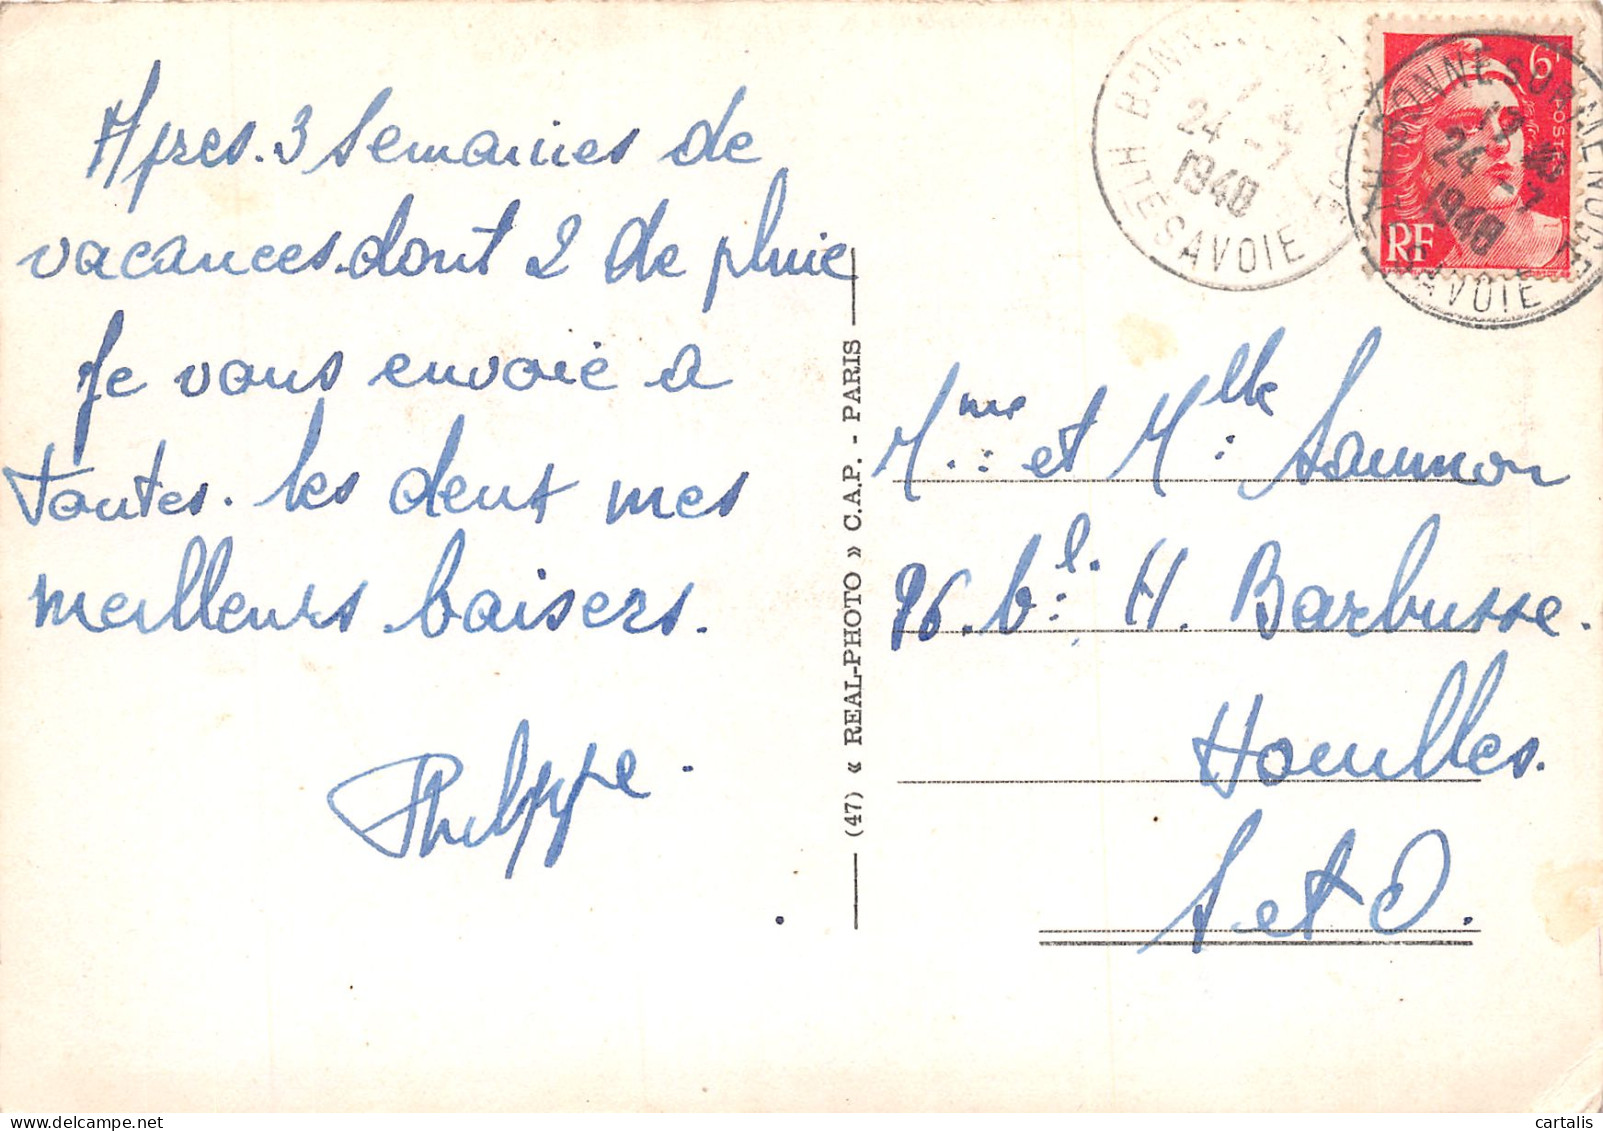 Apres. 3 Semaines de
vacances. dont 2 de pluie
Je vous envoie a
toutes. les deux mes
meilleurs baisers.
Philippe.
(47) « REAL-PHOTO » C.A.P. - PARIS
6F
POSTES
RF
BONNE SUR MENOGE
24 - 7
1948
HTE SAVOIE
BONNE SUR MENOGE
24 - 7
1948
HTE SAVOIE
Mme: et Mlle: Saumon
96. bl: H. Barbusse.
Houilles.
S et O.
cartalis